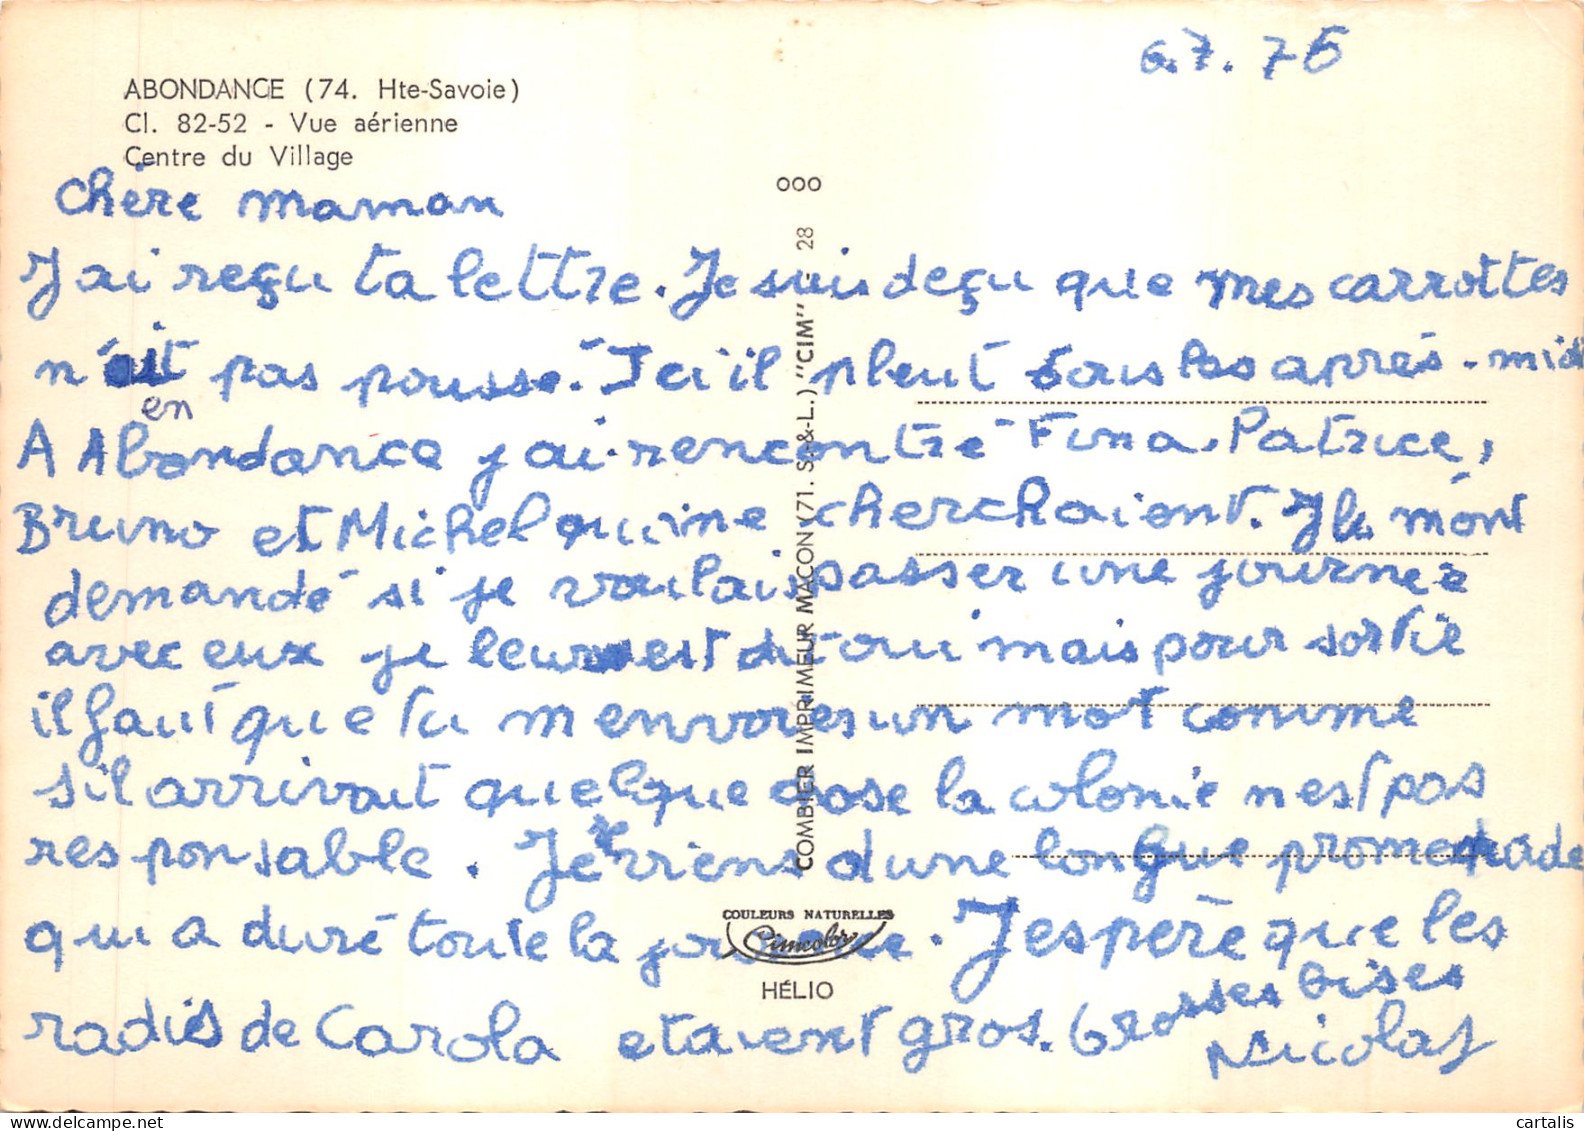 6.7.76
ABONDANCE (74. Hte-Savoie)
Cl. 82-52 - Vue aérienne
Centre du Village
chère maman
J'ai reçu ta lettre. Je suis deçu que mes carrottes
n'ait pas poussé. Ici il pleut tous les après-midi
en
A Abondance j'ai rencontré Fina, Patrice,
Bruno et Michel qui me cherchaient. Ils m'ont
demandé si je voulais passer une journée
avec eux je leur est dit oui mais pour sortie
il faut que tu m'envoies un mot comme
s'il arrivait quelque chose la colonie n'est pas
responsable. Je reviens d'une longue promenade
qui a duré toute la journée. J'espère que les
radis de Carola etaient gros. Grosses bises
Nicolas
COMBIER IMPRIMEUR MACON (71. S.-&-L.) "CIM" - 28 000
COULEURS NATURELLES
Cimcolor
HÉLIO
cartalis
www.delcampe.net